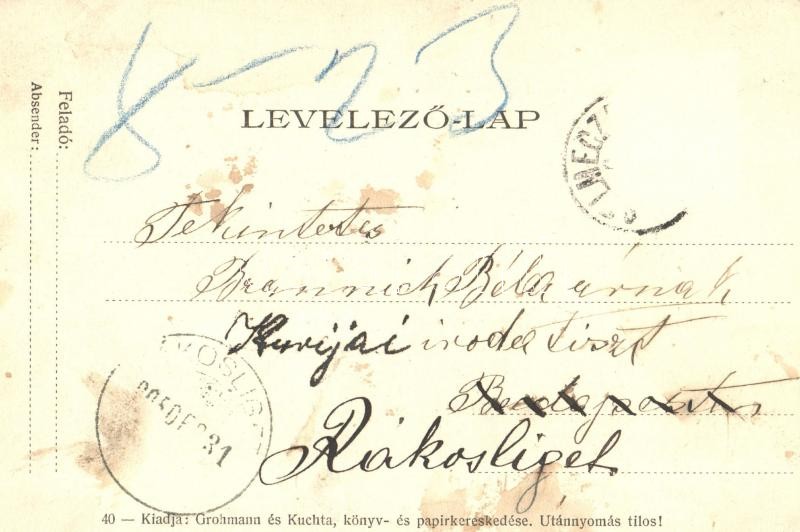 8-23
LEVELEZŐ-LAP
Feladó:
Absender:
Tekintetes
Brannich Béla úrnak
Kurijai irodatiszt
Budapest
Rákosliget
905 DEC 31
40 — Kiadja: Grohmann és Kuchta, könyv- és papirkereskedése. Utánnyomás tilos!